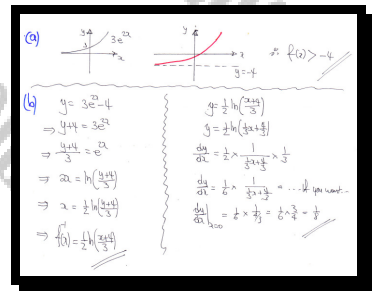 (a)
y
3
3e^{2x}
x
y
x
y=-4
∴ f(x) > -4
(b)
y = 3e^{2x} - 4
⇒ y+4 = 3e^{2x}
⇒ \frac{y+4}{3} = e^{2x}
⇒ 2x = ln(\frac{y+4}{3})
⇒ x = \frac{1}{2} ln(\frac{y+4}{3})
⇒ f^{-1}(x) = \frac{1}{2} ln(\frac{x+4}{3})
y = \frac{1}{2} ln(\frac{x+4}{3})
y = \frac{1}{2} ln(\frac{1}{3}x + \frac{4}{3})
\frac{dy}{dx} = \frac{1}{2} × \frac{1}{\frac{1}{3}x + \frac{4}{3}} × \frac{1}{3}
\frac{dy}{dx} = \frac{1}{6} × \frac{1}{\frac{1}{3}x + \frac{4}{3}} = ... if you want...
\frac{dy}{dx}|_{x=0} = \frac{1}{6} × \frac{1}{4/3} = \frac{1}{6} × \frac{3}{4} = \frac{1}{8}